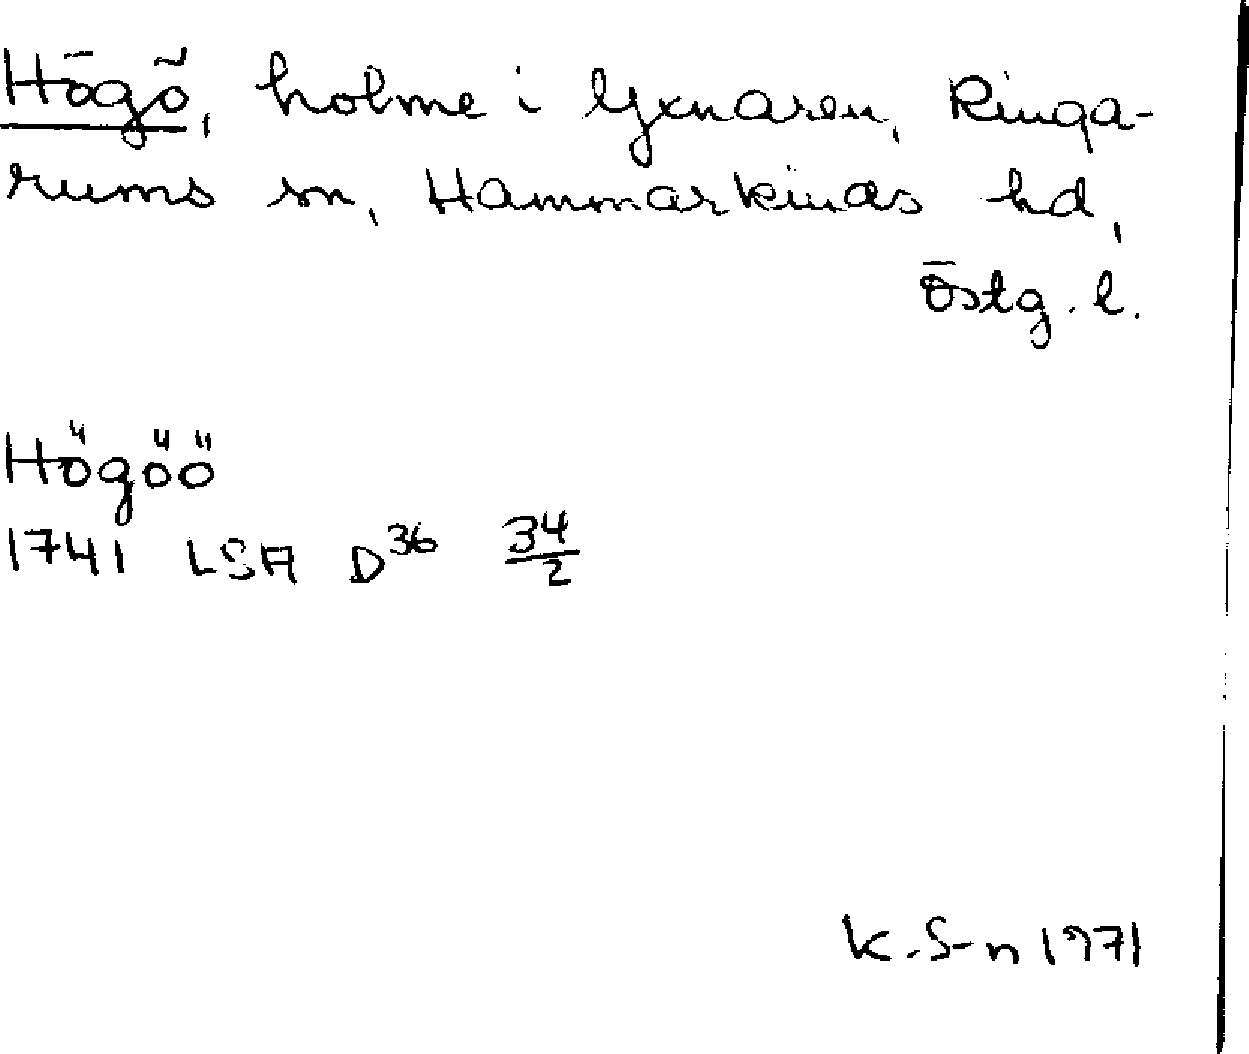 Högö, holme i Yxnaren, Ringa-
rums sn, Hammarkinds hd,
Östg. l.
Högöö
1741 LSA D36 34/2
K.S-n 1971